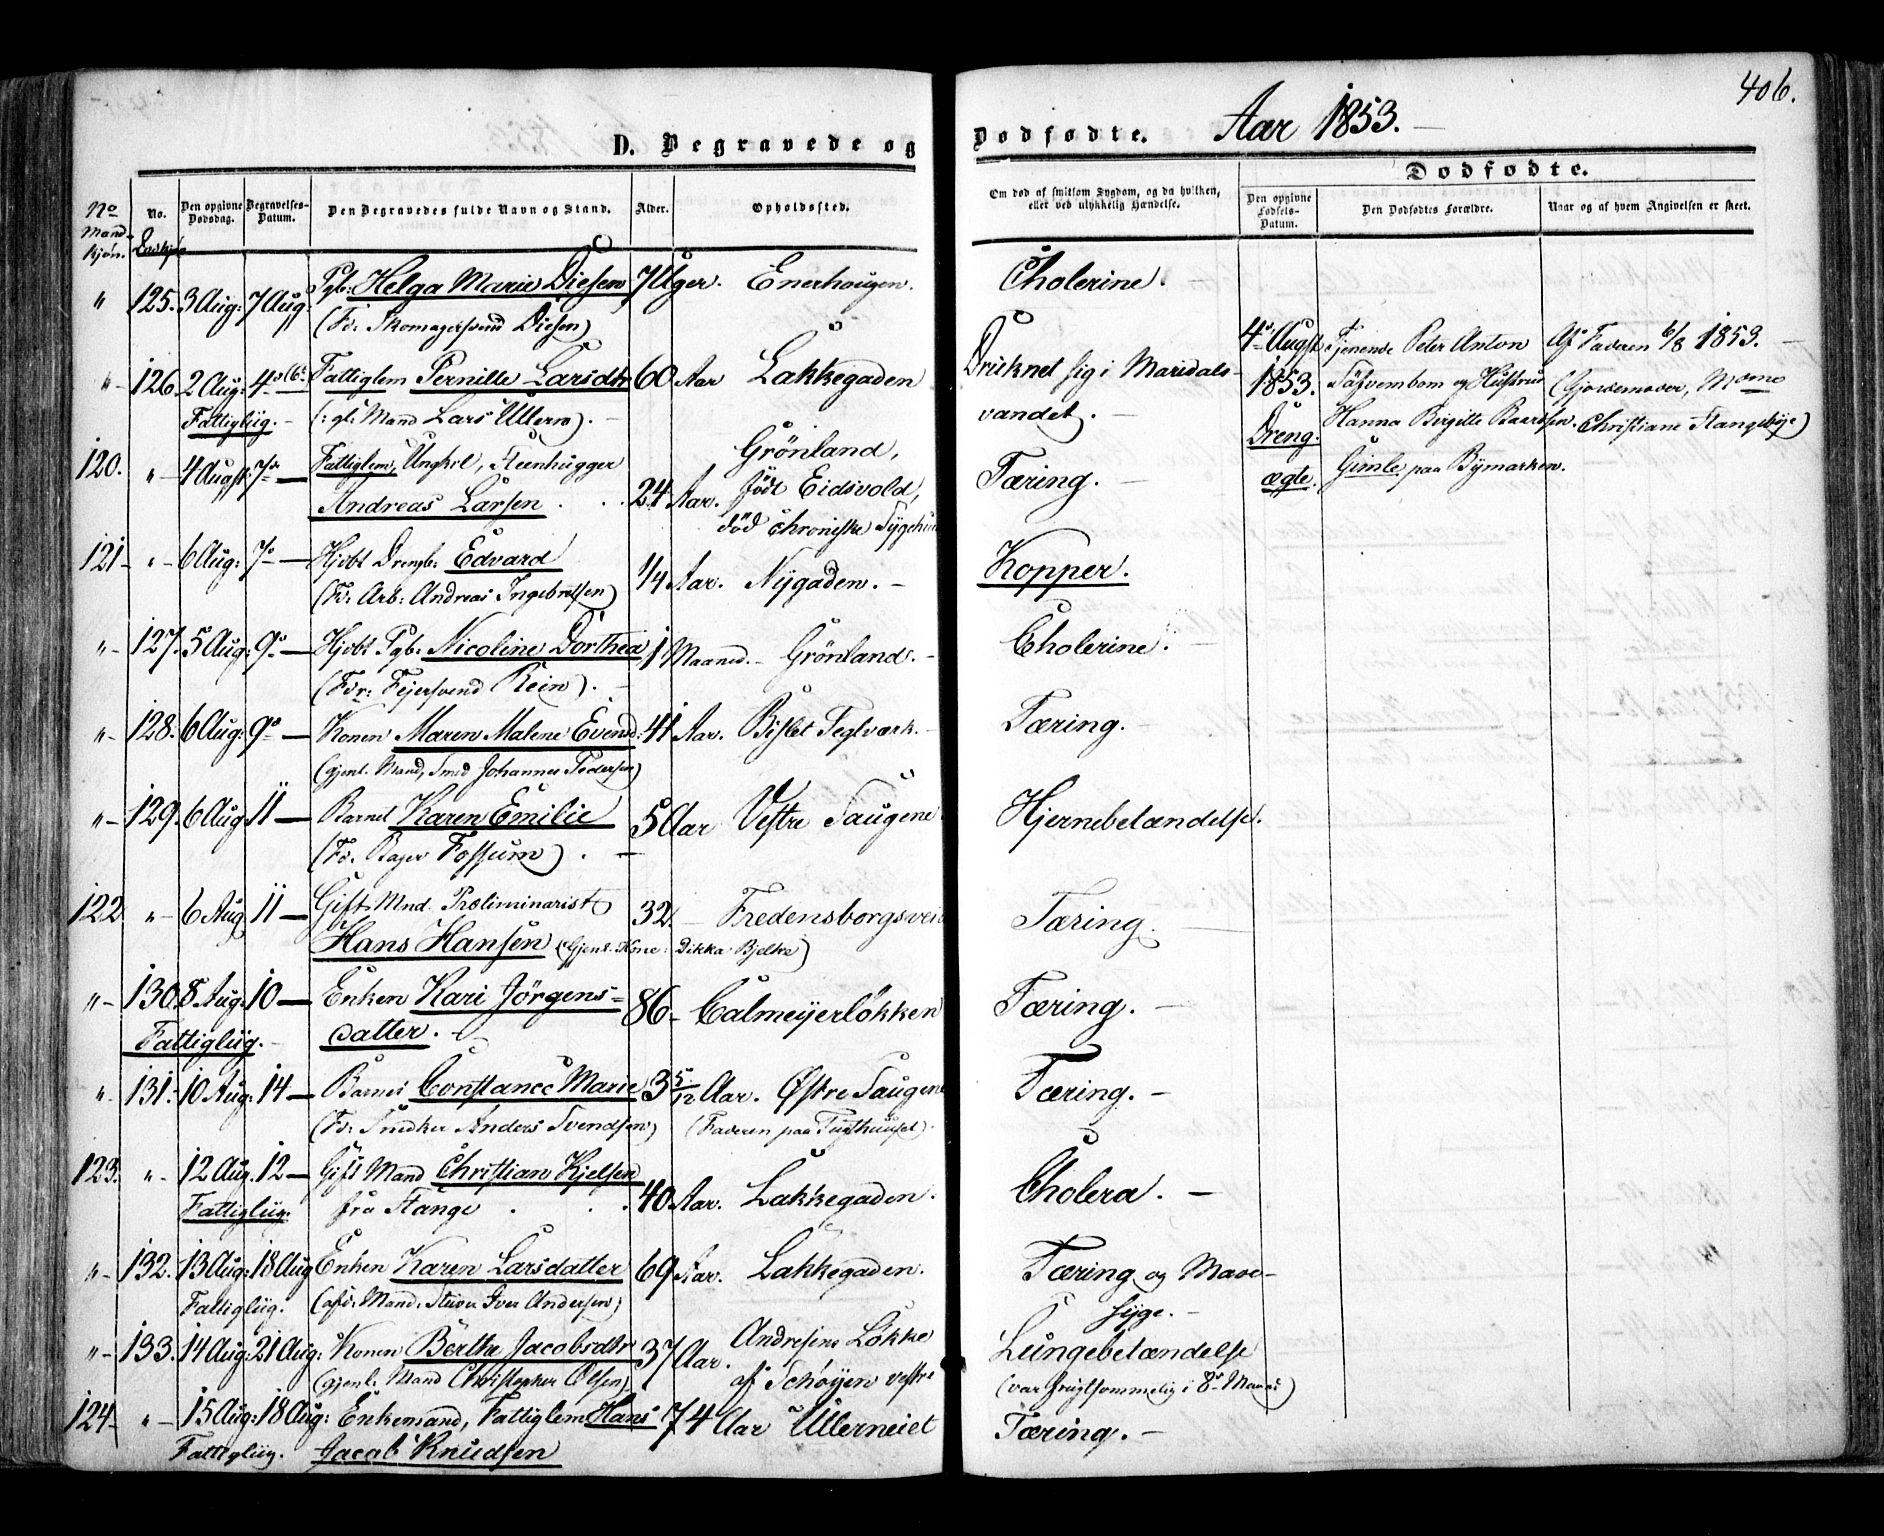 406.
D. Begravede og Dødfødte. Aar 1853.
Dødfødte.
No Mand-kjøn.
No. Qvkjøn
Den opgivne Dødsdag.
Begravelses-Datum.
Den Begravedes fulde Navn og Stand.
Alder.
Opholdssted.
Om død af smitsom Sygdom, og da hvilken, eller ved ulykkelig Hændelse.
Den opgivne Fødsels-Datum.
Den Dødfødtes Forældre.
Naar og af hvem Angivelsen er skeet.
" 125. 3 Aug: 7 Aug: Pgb: Helga Marie Diesen 7 Uger. Enerhougen. Cholerine.
(Fr: Skomagersvend Diesen)
"- 126. 2 Aug: 4- Fattiglem Pernille Larsdtr 60 Aar Lakkegaden Druknet sig i Maridals-
Fattigliig. - (: gl: Mand Lars Ullern). - vandet. -
4de August Tjenende Peter Anton Af Faderen 6/8 1853. -
1853. Täfvembom og Hustrue (Gjordemoder, Mome
Dreng. Hanna Birgitte Baarsen. Christiane Stangebye)
ægte. Gimle paa Bymarken.
120. "- 4 August 7de - Fattiglem, Ungkrl, Steenhugger Grönland,
Andreas Larsen . . . 24 Aar. født Eidsvold, Tæring. -
død chroniske Sygehuus
121- "- 6 Aug: 7de - Hjdbt Drengb: Edvard 1/4 Aar. Nygaden. - Kopper.
(Fr: Arb: Andreas Ingebretsen)
"- 127. 5 Aug: 9de - Hjdbt Pgb: Nicoline Dorthea 1 Maaned. - Grönland. - Cholerine. -
(Fdr: Fejersvend Rein). -
"- 128. 6 Aug: 9de - Konen Maren Malene Evensd: 41 Aar. Bislet Teglværk. - Tæring. -
(gjenl. Mand, Smed Johannes Pedersen)
"- 129. 6 Aug: 11 - Barnet Karen Emilie 5 Aar Vestre Saugene Hjernebetændelse.
(Fr. Bager Fossum) . -
122 "- 6 Aug 11 - Gift Mnd. Præliminarist 32. - Fredensborgsvei Tæring. -
Hans Hansen (Gjenl. Kone: Dikka Bjelke)
"- 130. 8 Aug: 10 - Enken Kari Jørgens- 86 - Calmeyerløkken Tæring. -
Fattigliig. - datter. -
"- 131. 10 Aug: 14 - Barnet Constance Marie 3 5/12 Aar. Østre Saugene Tæring. -
(Fr: Snedker Anders Svendsen) (Faderen paa Tugthuuset).
123. "- 12 Aug. 12 - Gift Mand Christian Kjelsen 40 Aar. Lakkegaden. Cholera. -
Fattigliig. fra Stange . . .
"- 132. 13 Aug: 18 Aug Enken Karen Larsdatter 69 Aar. Lakkegaden. Tæring og Mave-
Fattigliig. (afd: Mand: Stuver Iver Andersen) syge. -
"- 133. 14 Aug: 21 Aug: Konen Berthe Jacobsdtr 37 Aar. Andresens Løkke Lungebetændelse
(gjenl. Mand Christopher Olsen) af Schøyen vestre (var frugtsommelig i 8de Maaned)
124- "- 15 Aug: 18 Aug: Enkemand, Fattiglem Hans 74 Aar Ullerneiet Tæring. -
Fattigliig. Jacob Knudsen